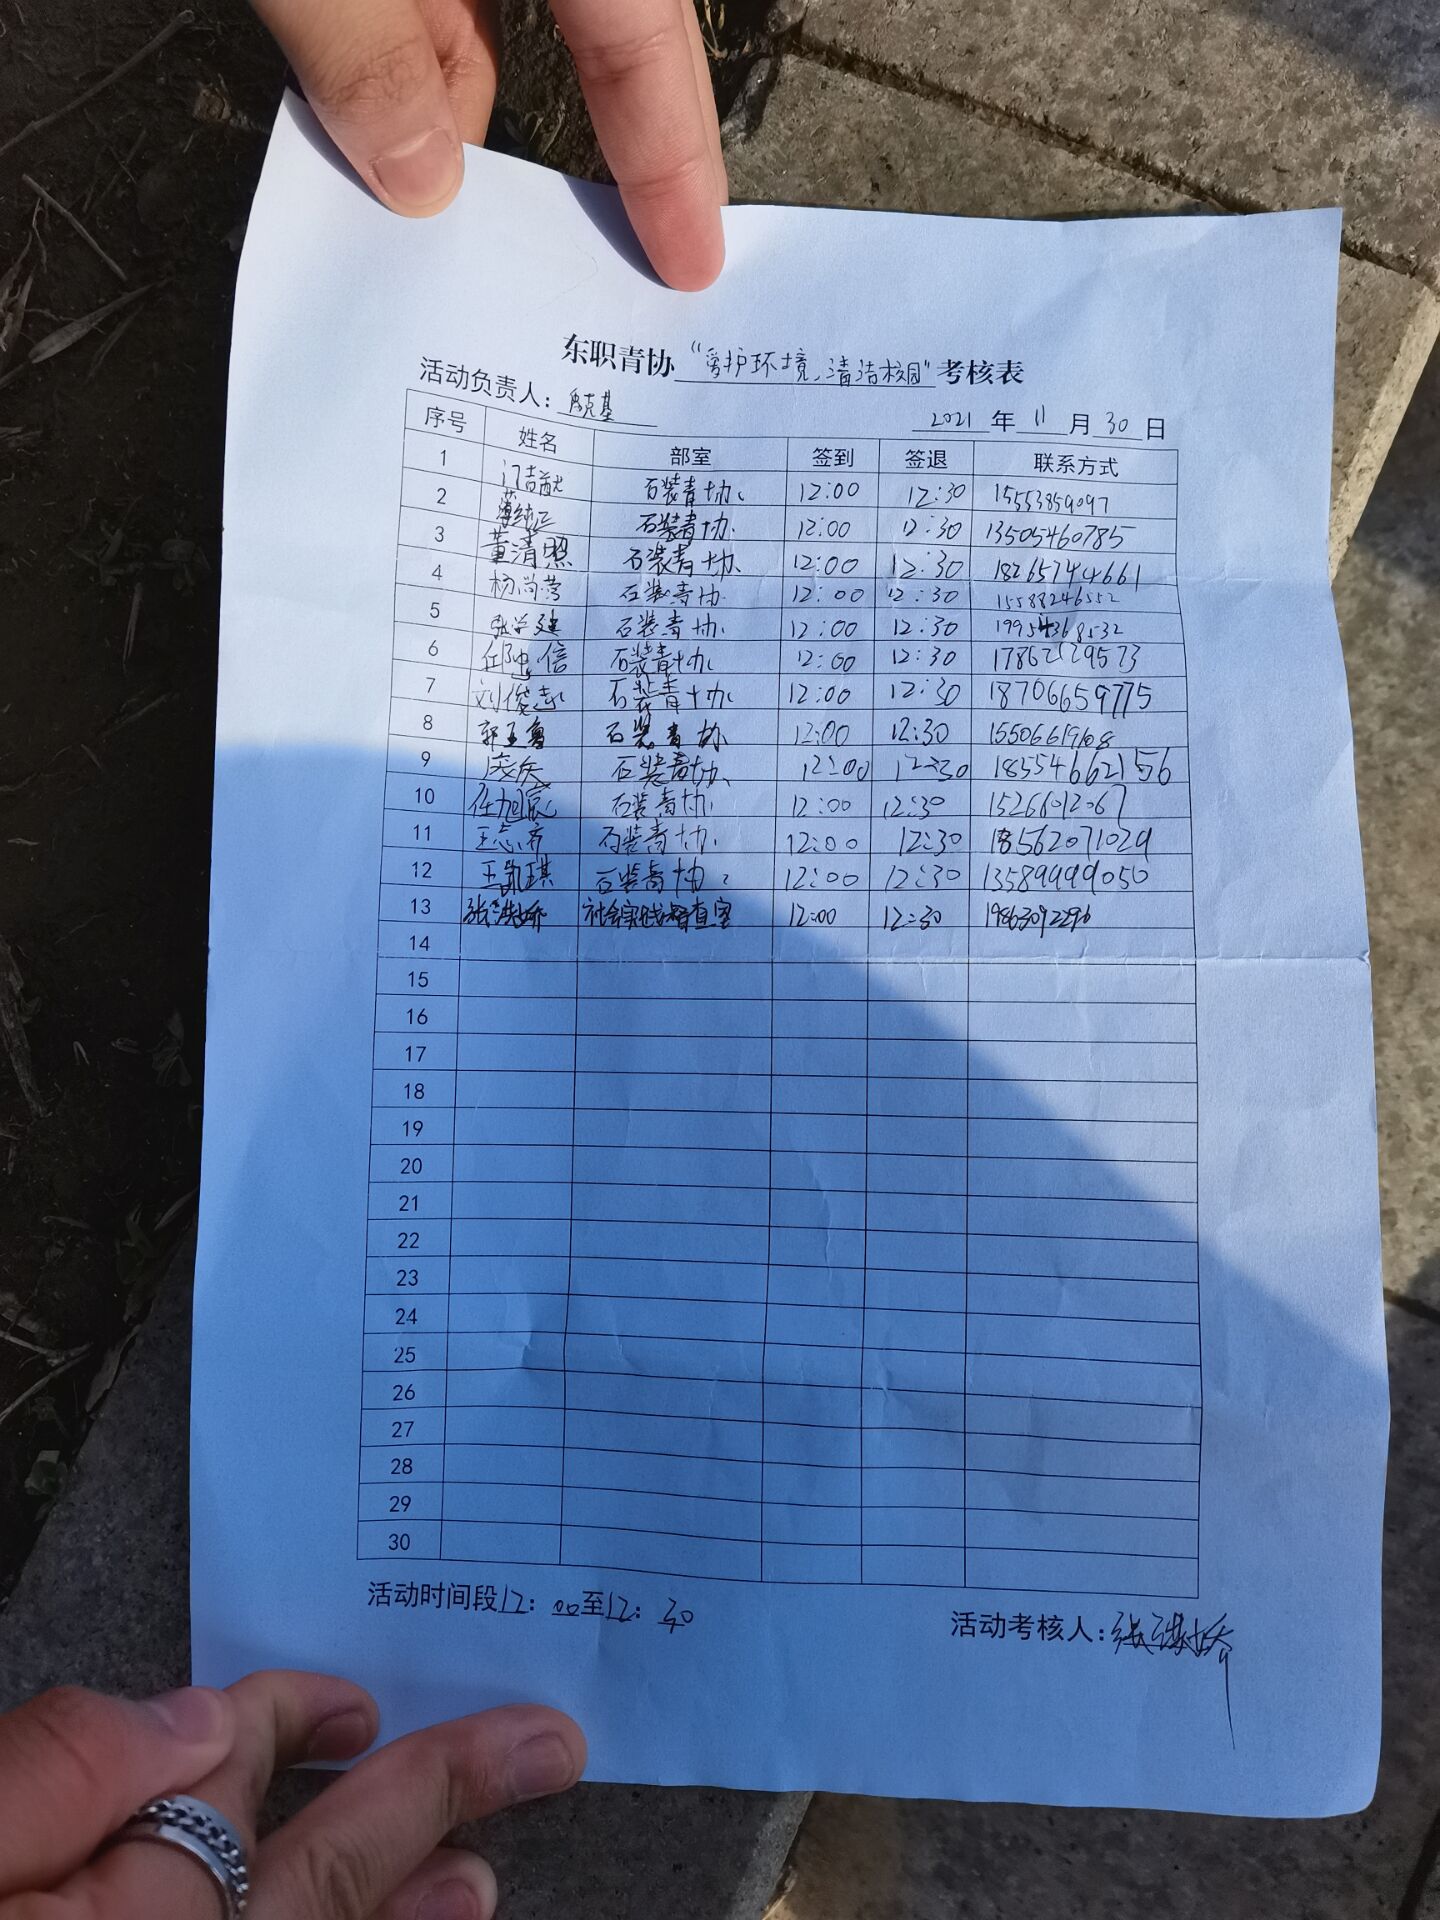 东职青协“爱护环境,清洁校园”考核表
活动负责人:
2021年11月30日
序号 姓名 部室 签到 签退 联系方式
1 石装青协 12:00 12:30 15553859097
2 石装青协 12:00 12:30 13505460785
3 董清照 石装青协 12:00 12:30 18265744661
4 杨尚营 石装青协 12:00 12:30 15588246552
5 张学建 石装青协 12:00 12:30
6 邱忠信 石装青协 12:00 12:30 17862129573
7 刘俊志 石装青协 12:00 12:30 18706659775
8 郭玉鲁 石装青协 12:00 12:30 15506619108
9 石装青协 12:00 12:30 18554662156
10 任旭宸 石装青协 12:00 12:30
11 王志齐 石装青协 12:00 12:30 18562071029
12 王凯琪 石装青协 12:00 12:30 13589999050
13 社会实践督查室 12:00 12:30 19863092296
14
15
16
17
18
19
20
21
22
23
24
25
26
27
28
29
30
活动时间段12:00至12:30
活动考核人: